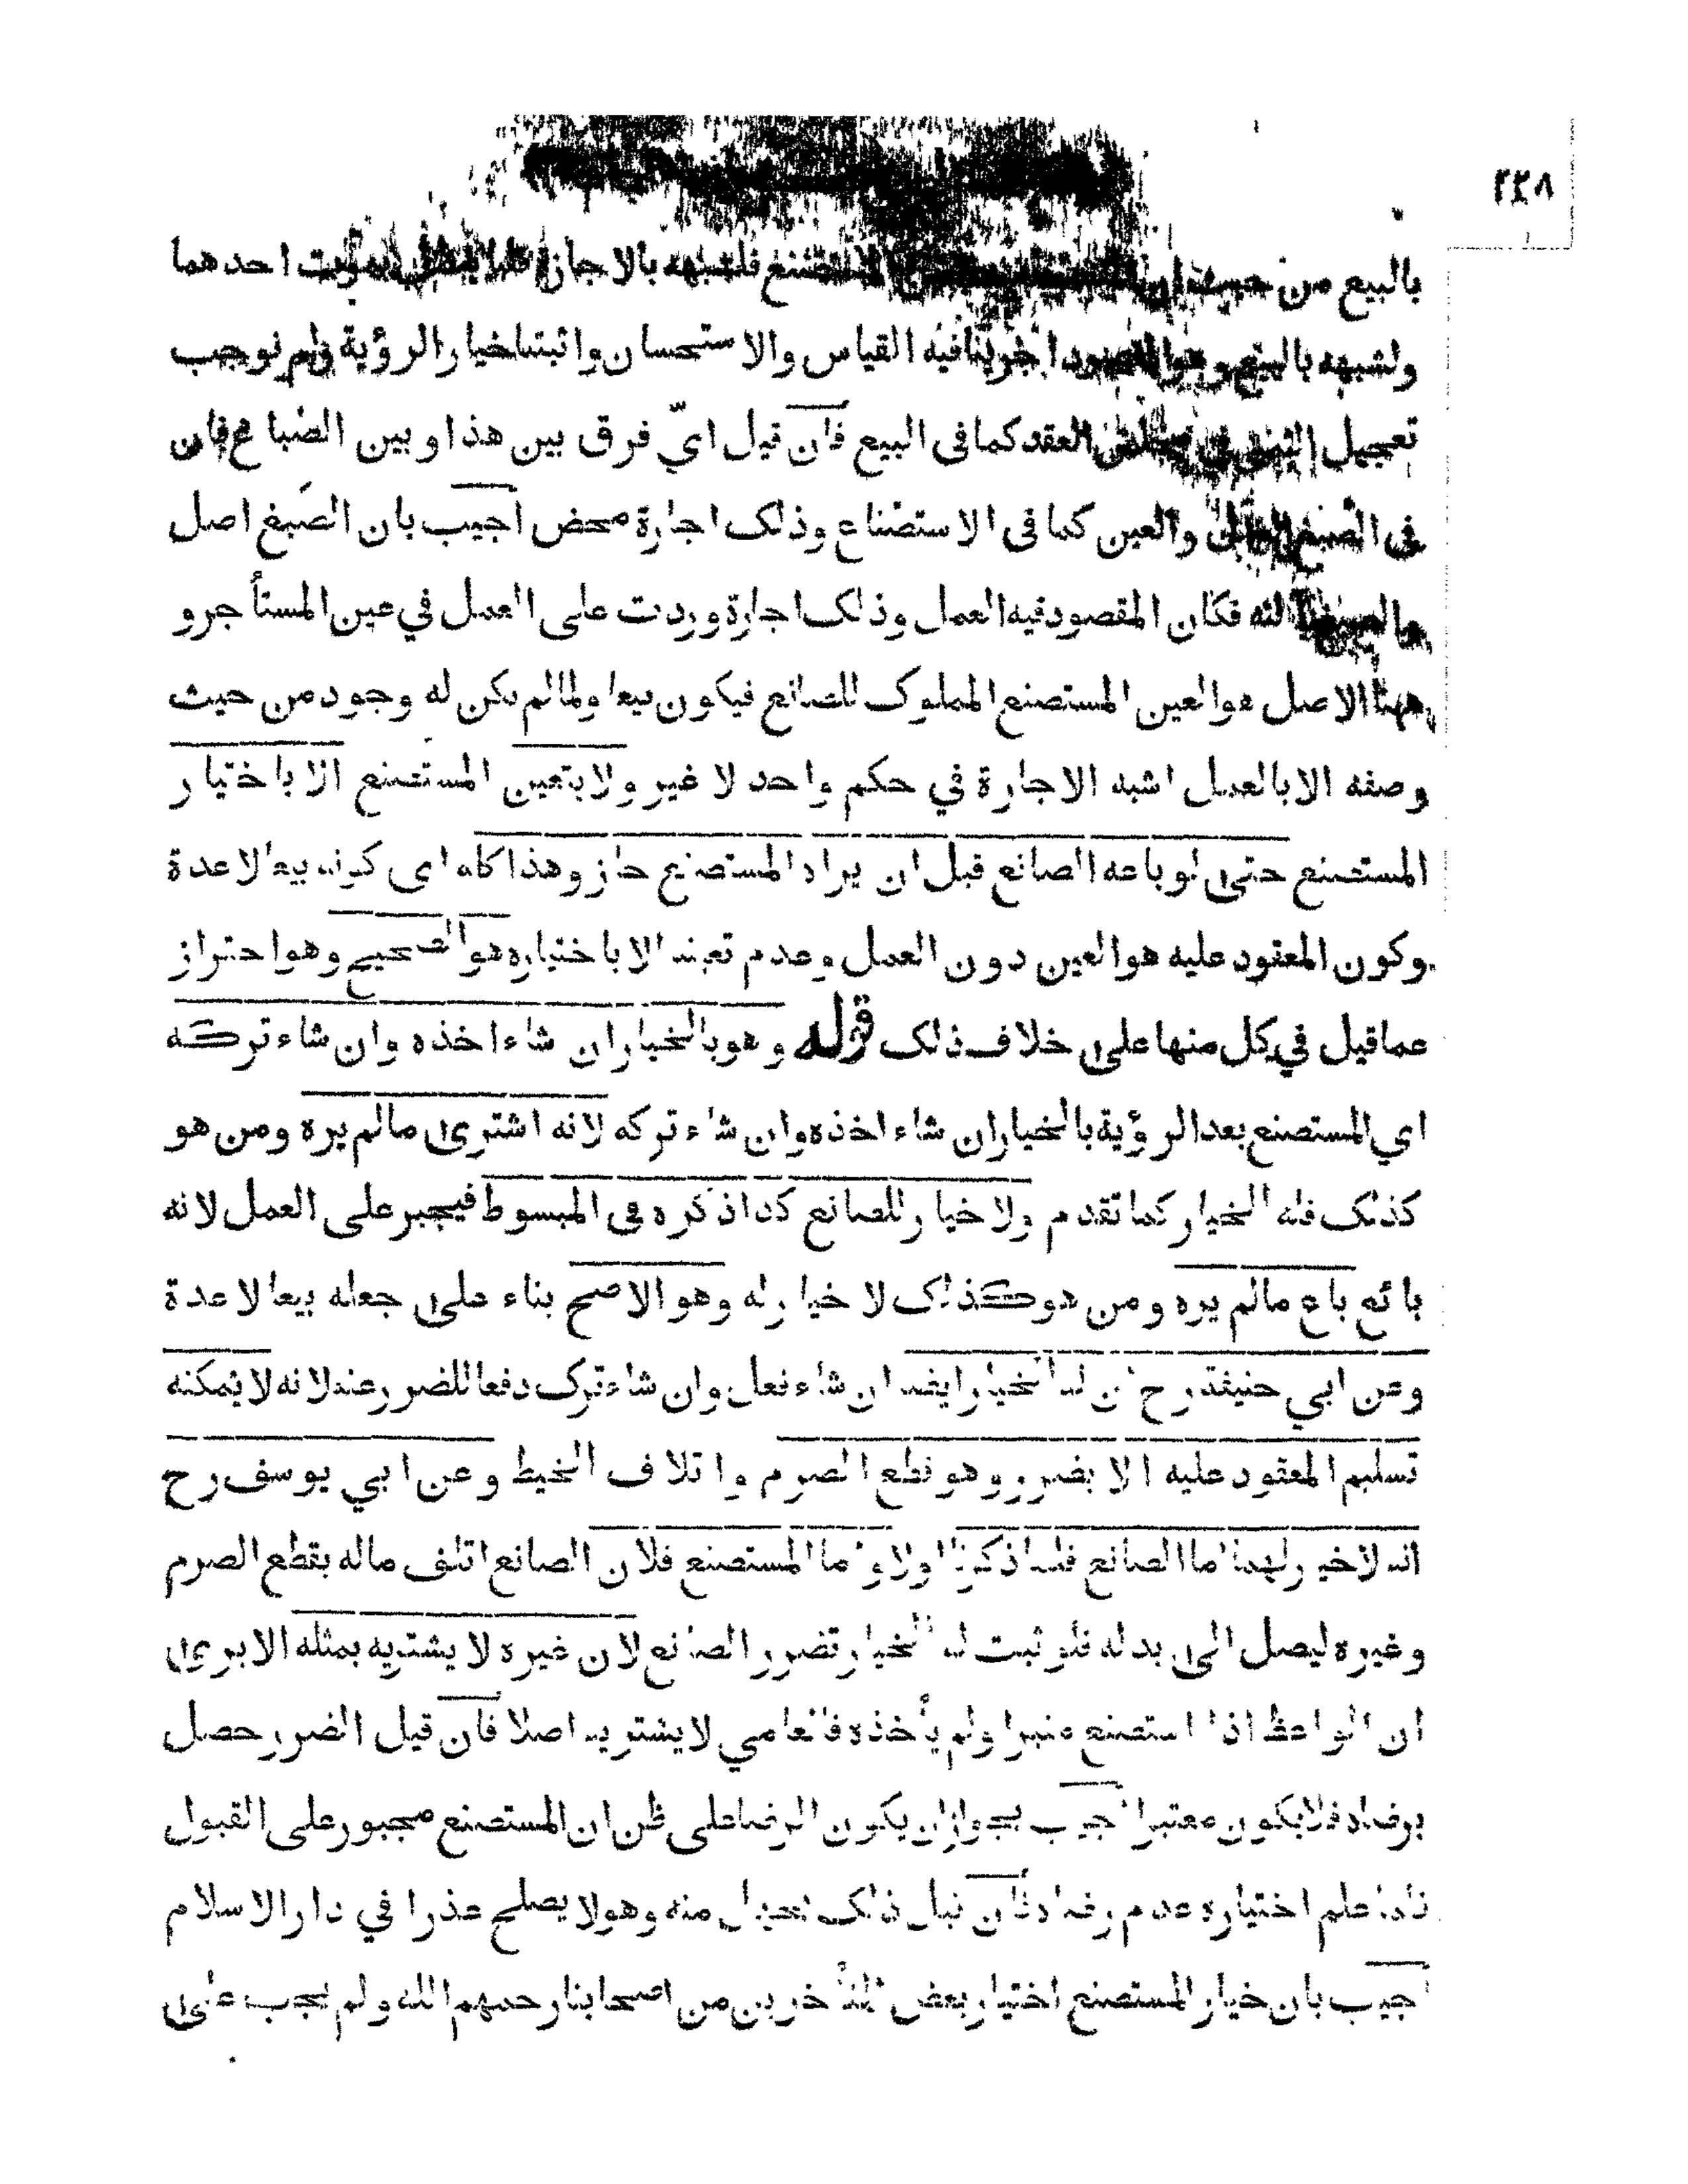 ٢٣٨
بالبيع من حيث ان المستصنع فلشبهه بالاجارة قلنا يبطل بموت احدهما
ولشبهه بالبيع وهو المقصود اجرينا فيه القياس والاستحسان واثبتنا خيار الرؤية ولم نوجب
تعجيل الثمن في مجلس العقد كما في البيع فان قيل ايّ فرق بين هذا وبين الصّباغ فان
في الصبغ العمل والعين كما في الاستصناع وذلك اجارة محض اجيب بان الصَبغ اصل
والصبغ آلته فكان المقصود فيه العمل وذلك اجارة وردت على العمل في عين المستأجر و
ههنا الاصل هو العين المستصنع المملوك للصانع فيكون بيعا ولما لم يكن له وجود من حيث
وصفه الا بالعمل اشبه الاجارة في حكم واحد لا غير ولا يتعين المستصنع الا باختيار
المستصنع حتى لو باعه الصانع قبل ان يراه المستصنع جاز وهذا كله اى كونه بيعا لا عدة
وكون المعقود عليه هو العين دون العمل وعدم تعينه الا باختياره هو الصحيح وهو احتراز
عما قيل في كل منها على خلاف ذلك قوله وهو بالخيار ان شاء اخذه وان شاء تركه
اي المستصنع بعد الرؤية بالخيار ان شاء اخذه وان شاء تركه لانه اشترى مالم يره ومن هو
كذلك فله الخيار كما تقدم ولا خيار للصانع كذا ذكره في المبسوط فيجبر على العمل لانه
بائع باع مالم يره ومن هو كذلك لا خيار له وهو الاصح بناء على جعله بيعا لا عدة
وعن ابي حنيفة رح ان له الخيار ايضا ان شاء فعل وان شاء ترك دفعا للضرر عنه لانه لا يمكنه
تسليم المعقود عليه الا بضرر وهو قطع الصرم واتلاف الخيط وعن ابي يوسف رح
انه لا خيار لهما اما الصانع فلما ذكرنا اولا واما المستصنع فلان الصانع اتلف ماله بقطع الصرم
وغيره ليصل الى بدله فلو ثبت له الخيار تضرر الصانع لان غيره لا يشتريه بمثله الا يرى
ان الواعظ اذا استصنع منبرا ولم يأخذه فالعامي لا يشتريه اصلا فان قيل الضرر حصل
برضاه فلا يكون معتبرا اجيب بجواز ان يكون الرضا على ظن ان المستصنع مجبور على القبول
فلما علم اختياره عدم رضاه فان قيل ذلك لجهل منه وهو لا يصلح عذرا في دار الاسلام
اجيب بان خيار المستصنع اختيار بعض المتأخرين من اصحابنا رحمهم الله ولم يجب على